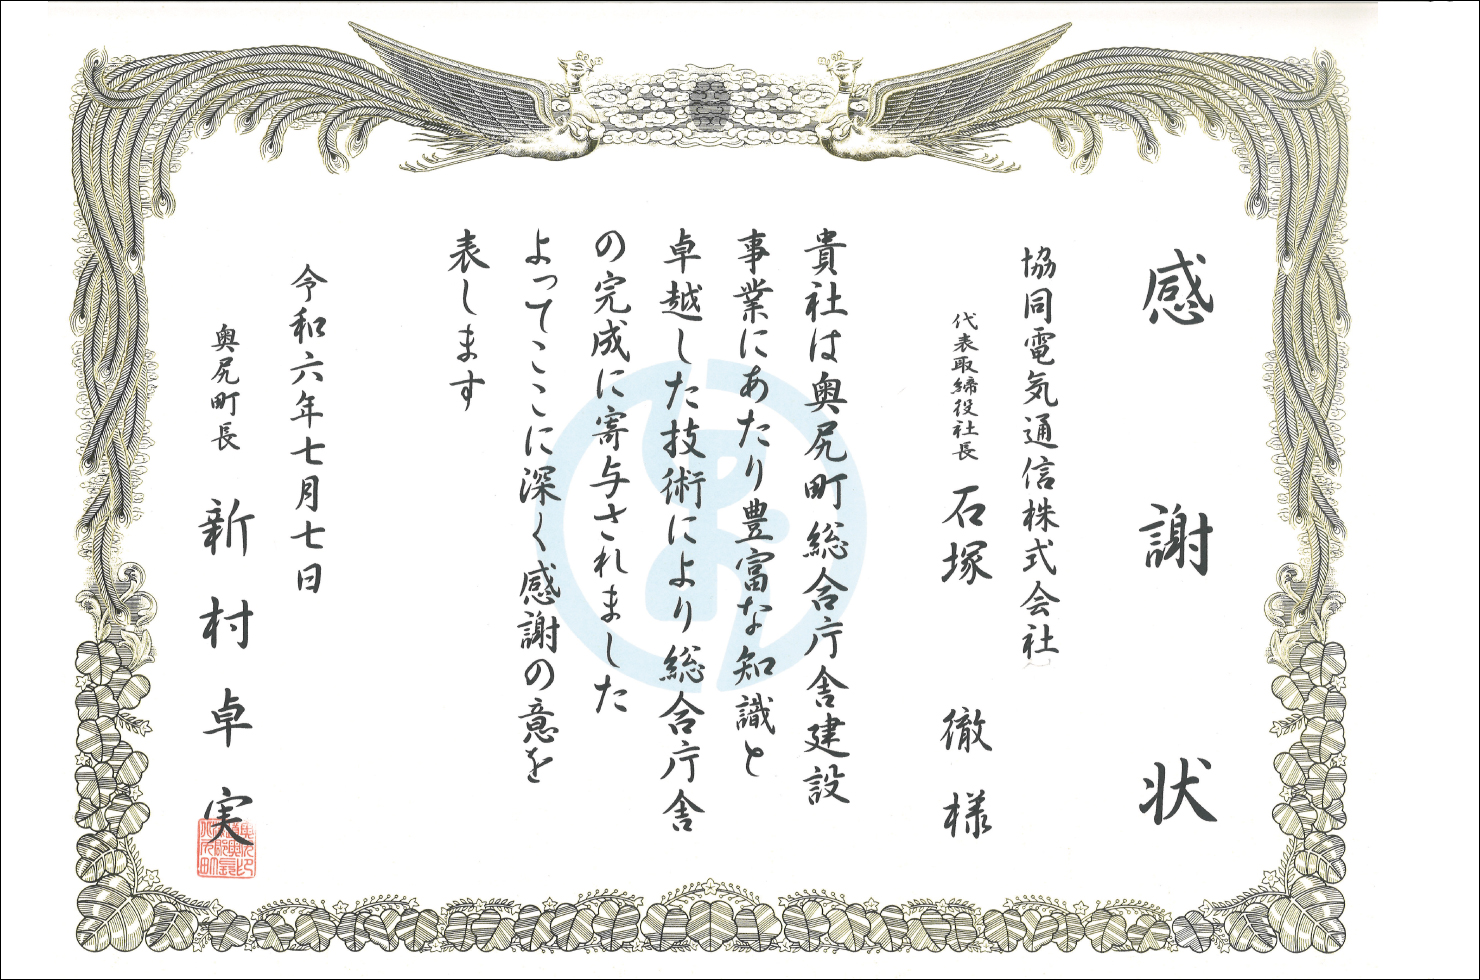 感謝状
協同電気通信株式会社
代表取締役社長 石塚 徹 様
貴社は奥尻町総合庁舎建設
事業にあたり豊富な知識と
卓越した技術により総合庁舎
の完成に寄与されました
よってここに深く感謝の意を
表します
令和六年七月七日
奥尻町長 新村卓実